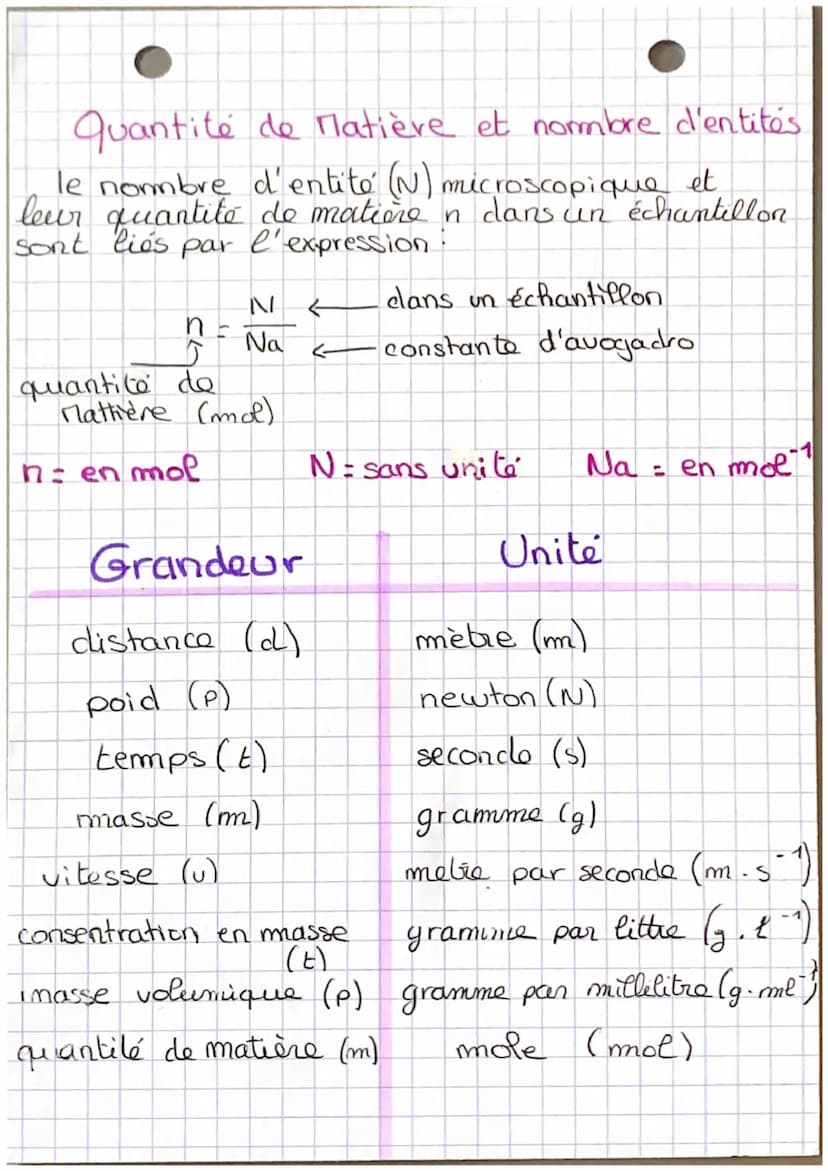 Quantité de Matière et nombre d'entités
le nombre d'entité (N) microscopique et
leur quantité de matière n dans un échantillon
sont liés par l'expression :
n = N/Na
← dans un échantillon
← constante d'avogadro
quantité de
Mattière (mol)
n = en mol N = sans unité Na = en mol⁻¹
Grandeur Unité
distance (d) mètre (m)
poid (P) newton (N)
temps (t) seconde (s)
masse (m) gramme (g)
vitesse (v) metre par seconde (m.s⁻¹)
consentration en masse gramme par littre (g.l⁻¹)
(t)
masse volumique (ρ) gramme par millelitre (g.ml⁻¹)
quantité de matière (m) mole (mol)